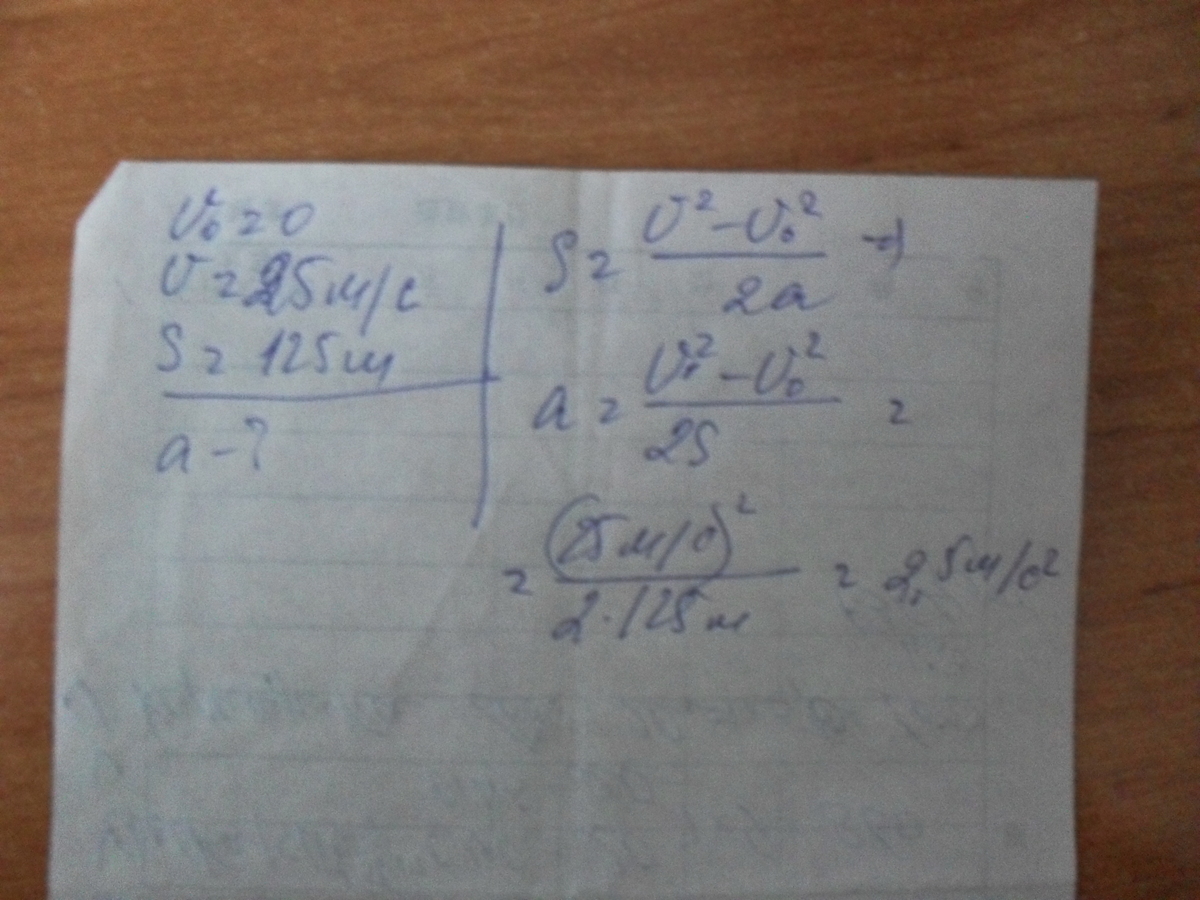 V₀ = 0
V = 25 м/с
S = 125 м
a - ?
S = (V² - V₀²) / 2a ⇒
a = (V² - V₀²) / 2S =
= (25 м/с)² / 2·125 м = 2,5 м/с²